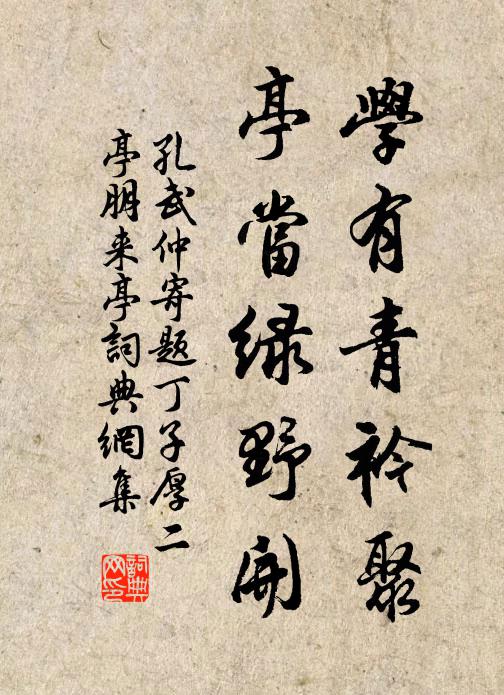 學有青衿聚
亭當緑野開
孔武仲寄題丁子厚二
亭朋来亭詞典網集
詞典
网印